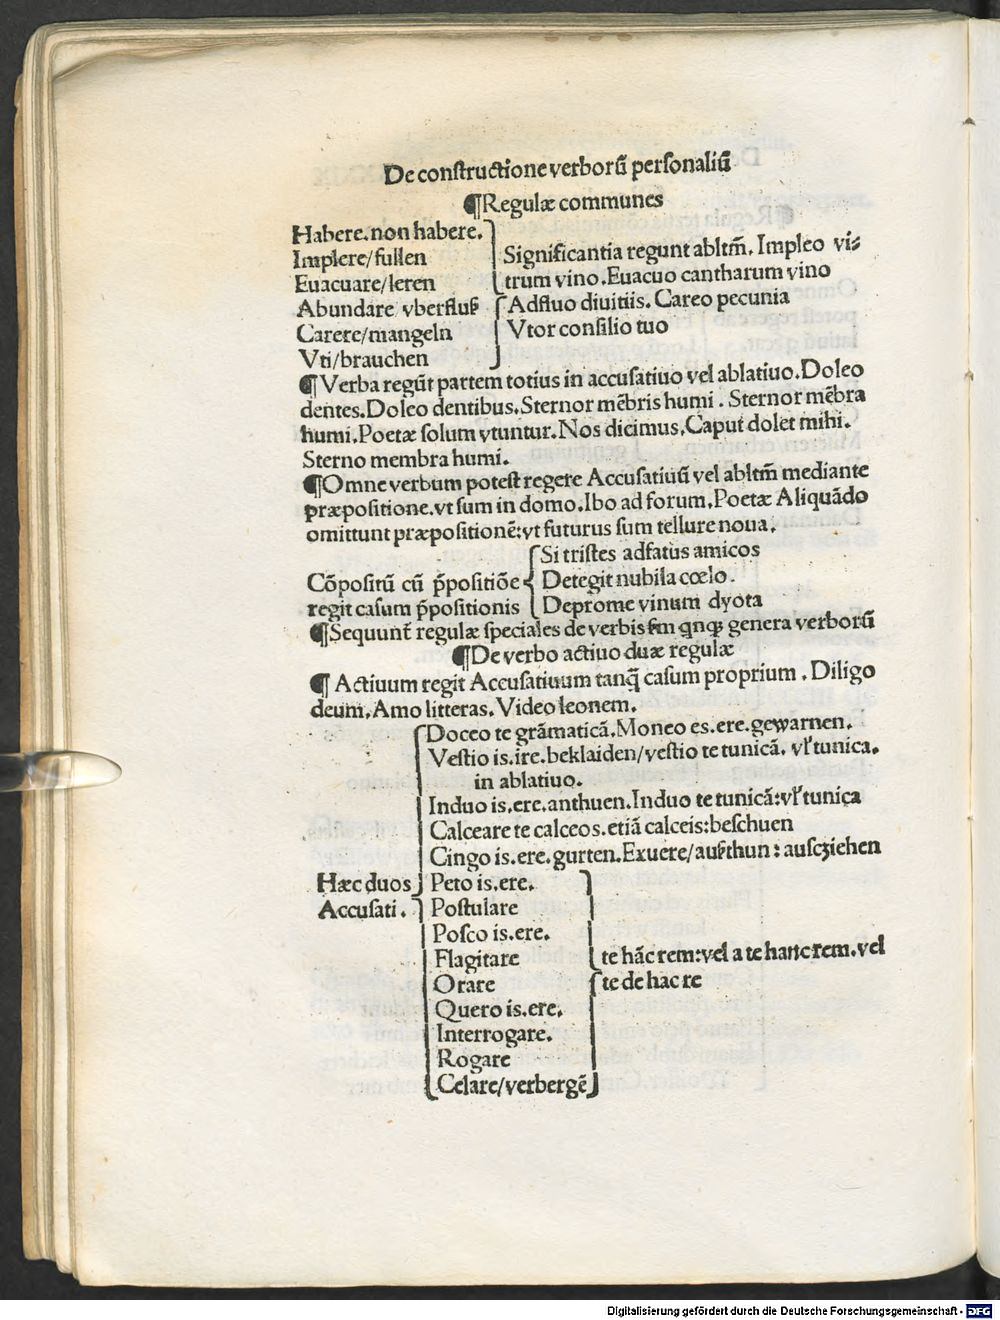 De constructione verborū personaliū
¶Regulæ communes
Habere.non habere.
Implere/fullen
Euacuare/leren
Abundare vberfluß
Carere/mangeln
Vti/brauchen
Significantia regunt abltm̄. Impleo vi⸗
trum vino.Euacuo cantharum vino
Adfluo diuitiis. Careo pecunia
Vtor consilio tuo
¶Verba regūt partem totius in accusatiuo vel ablatiuo.Doleo
dentes.Doleo dentibus.Sternor mēbris humi . Sternor mēbra
humi.Poetæ solum vtuntur.Nos dicimus.Caput dolet mihi.
Sterno membra humi.
¶Omne verbum potest regere Accusatiuū vel abltm̄ mediante
præpositione.vt sum in domo.Ibo ad forum.Poetæ Aliquādo
omittunt præpositionē:vt futurus sum tellure noua.
Cōpositū cū p̄positiōe
regit casum p̄positionis
Si tristes adfatus amicos
Detegit nubila cœlo.
Deprome vinum dyota
¶Sequunt̄ regulæ speciales de verbis s̄m qnqꝫ genera verborū
¶De verbo actiuo duæ regulæ
¶ Actiuum regit Accusatiuum tanq̄ casum proprium . Diligo
deum.Amo litteras.Video leonem.
Doceo te grāmaticā.Moneo es.ere.gewarnen.
Vestio is.ire.beklaiden/vestio te tunicā. vľ tunica.
in ablatiuo.
Induo is.ere.anthuen.Induo te tunicā:vľ tunica
Calceare te calceos.etiā calceis:beschuen
Cingo is.ere.gurten.Exuere/außthun:ausczhiehen
Hæc duos
Accusati.
Peto is.ere.
Postulare
Posco is.ere.
Flagitare
Orare
Quero is.ere.
Interrogare.
Rogare
Celare/verbergē
te hāc rem:vel a te hanc rem.vel
te de hac re
Digitalisierung gefördert durch die Deutsche Forschungsgemeinschaft - DFG